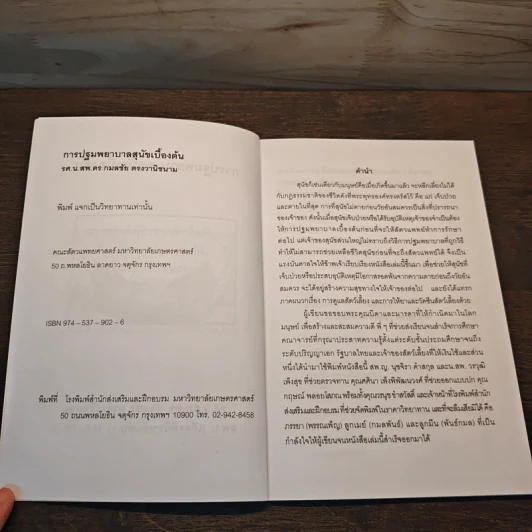 การปฐมพยาบาลสุนัขเบื้องต้น
รศ.น.สพ.ดร.กมลชัย ตรงวานิชนาม
พิมพ์ แจกเป็นวิทยาทานเท่านั้น
คณะสัตวแพทยศาสตร์ มหาวิทยาลัยเกษตรศาสตร์
50 ถ.พหลโยธิน ลาดยาว จตุจักร กรุงเทพฯ
ISBN 974-537-902-6
พิมพ์ที่ โรงพิมพ์สำนักส่งเสริมและฝึกอบรม มหาวิทยาลัยเกษตรศาสตร์
50 ถนนพหลโยธิน จตุจักร กรุงเทพฯ 10900 โทร. 02-942-8458
คำนำ
สุนัขก็เช่นเดียวกับมนุษย์คือเมื่อเกิดขึ้นมาแล้ว จะหลีกเลี่ยงไม่ได้
กับกฎธรรมชาติของชีวิตดังที่พระพุทธองค์ทรงตรัสไว้ คือ แก่ เจ็บป่วย
และตายในที่สุด การที่สุนัขไม่ตายก่อนวัยอันสมควรเป็นสิ่งที่ปรารถนา
ของเจ้าของ ดังนั้นเมื่อสุนัขเจ็บป่วยหรือได้รับอุบัติเหตุเจ้าของจำเป็นต้อง
ให้การปฐมพยาบาลเบื้องต้นก่อนที่จะให้สัตวแพทย์ทำการรักษา
ต่อไป แต่เจ้าของสุนัขส่วนใหญ่ไม่ทราบถึงวิธีการปฐมพยาบาลที่ถูกวิธี
ทำให้ไม่สามารถช่วยเหลือชีวิตสุนัขก่อนที่จะถึงสัตวแพทย์ได้ จึงเป็น
แรงบันดาลใจให้ข้าพเจ้าเรียบเรียงหนังสือเล่มนี้ขึ้นมา เพื่อช่วยให้สุนัขที่
เจ็บป่วยหรือประสบอุบัติเหตุมีโอกาสรอดพ้นจากความตายก่อนถึงวัยอัน
สมควร จะได้อยู่สร้างความสุขทางใจให้เจ้าของต่อไป และยังได้แทรก
ภาคผนวกเรื่อง การดูแลสัตว์เลี้ยง และการให้ยาและวัคซีนสัตว์เลี้ยงด้วย
ผู้เขียนขอขอบพระคุณบิดาและมารดาที่ให้กำเนิดมาในโลก
มนุษย์ เพื่อสร้างและสะสมความดี พี่ ๆ ที่ช่วยส่งเรียนจนสำเร็จการศึกษา
คณาจารย์ที่กรุณาประสาทความรู้ตั้งแต่ระดับชั้นประถมศึกษาจนถึง
ระดับปริญญาเอก รัฐบาลไทยและเจ้าของสัตว์เลี้ยงที่ให้เงินใช้และส่วน
หนึ่งได้นำมาใช้พิมพ์หนังสือนี้ สพ.ญ. นุชจิรา คำสกุล และน.สพ. วรวุฒิ
เพ็งสุข ที่ช่วยตรวจทาน คุณศศินา เพ็งพิพัฒนวงศ์ ที่ช่วยออกแบบปก คุณ
กฤษณ์ พลอยโสภณ พร้อมทั้งคุณวรนุช ชำสวัสดิ์ และเจ้าหน้าที่โรงพิมพ์สำนัก
ส่งเสริมและฝึกอบรม ที่ช่วยจัดพิมพ์ในราคาวิทยาทาน และที่จะลืมเสียมิได้ คือ
ภรรยา (พรรณเพ็ญ) ลูกเมย์ (กมลพันธ์) และลูกมีน (พันธ์กมล) ที่เป็น
กำลังใจให้ผู้เขียนจนหนังสือเล่มนี้สำเร็จออกมาได้